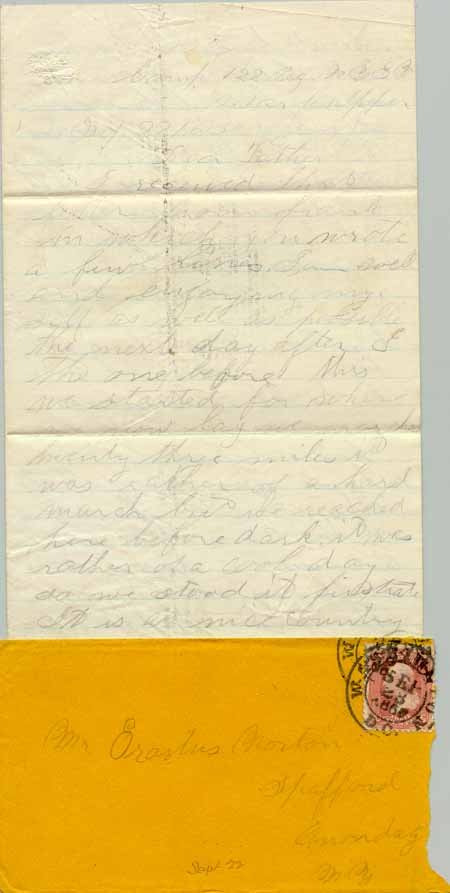 Camp 122 Reg N.Y.S.V.
near Culpeper
Dear Father
I received this
letter
in which you wrote
a few lines. I am well
and enjoying my
self as well as possible
the next day after I
the one before this
we started for where
we now lay we marched
twenty three miles it
was rather of a hard
march but we reached
here before dark it was
rather of a cool day
so we stood it firstrate
It is a nice country
Mr Erastus Norton
Spafford
Onondag
N.Y.
Sept 22